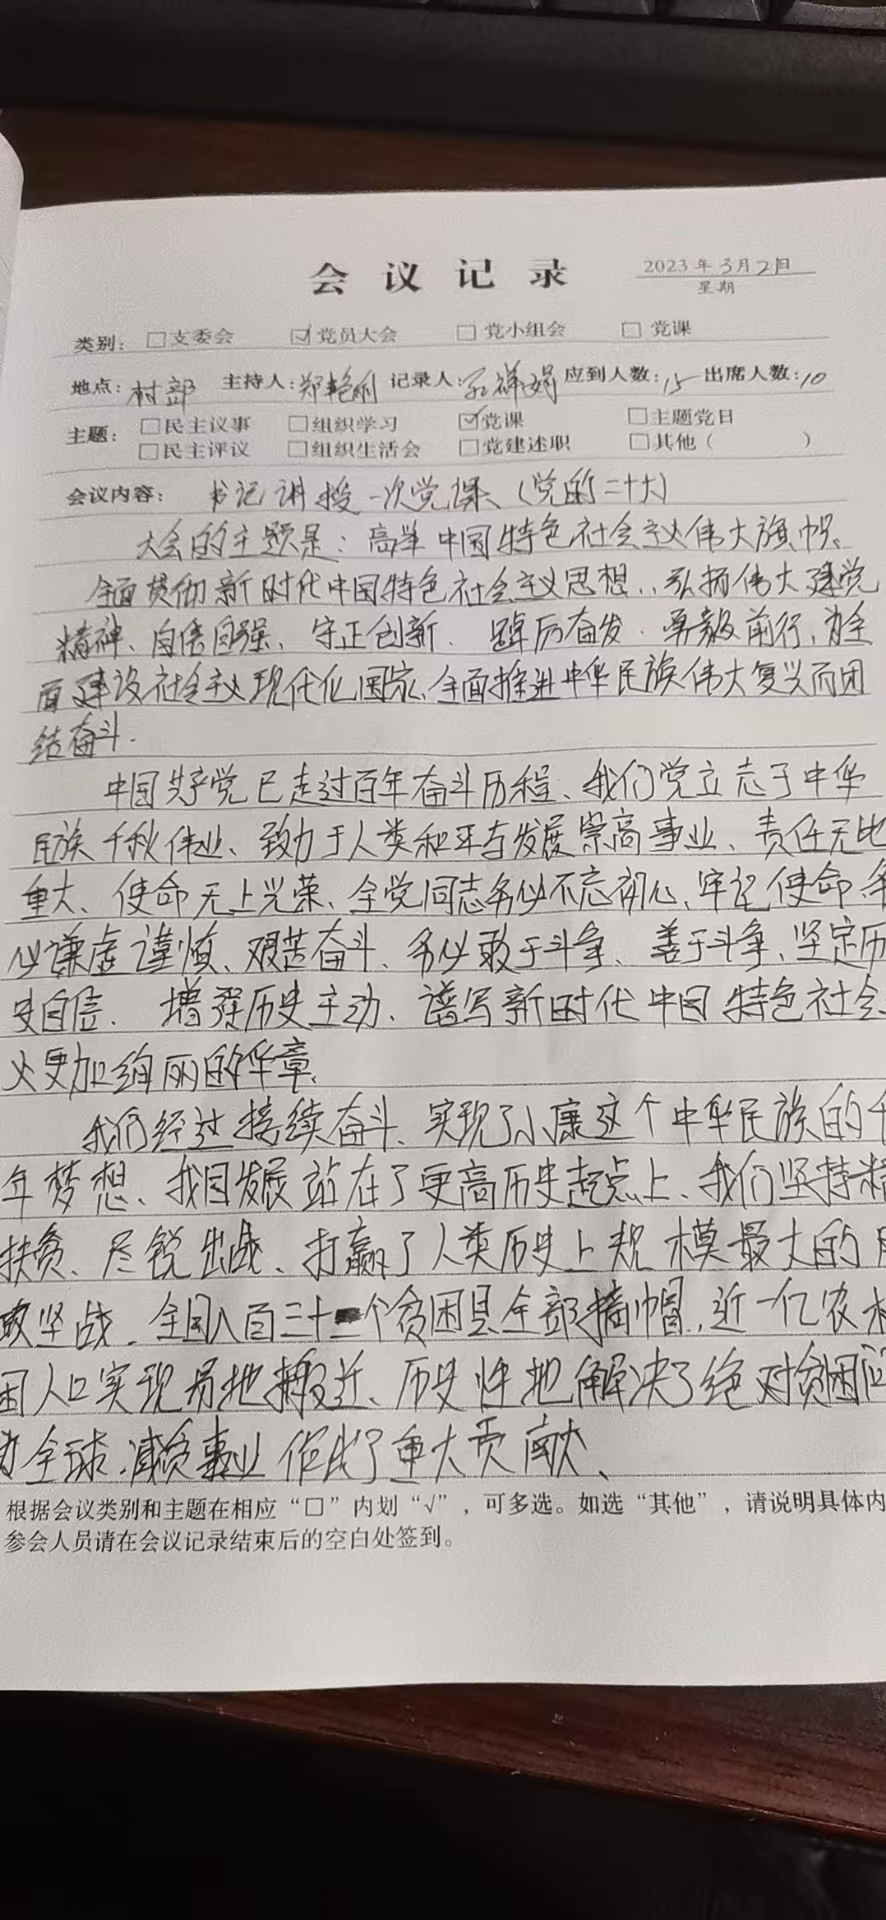 会议记录
2023年3月2日
星期
类别：□支委会 ☑党员大会 □党小组会 □党课
地点：村部 主持人：郑艳丽 记录人：孔祥娟 应到人数：15 出席人数：10
主题：□民主议事 □组织学习 ☑党课 □主题党日
□民主评议 □组织生活会 □党建述职 □其他（ ）
会议内容：书记讲授一次党课、（党的二十大）
大会的主题是：高举中国特色社会主义伟大旗帜、
全面贯彻新时代中国特色社会主义思想，、弘扬伟大建党
精神、自信自强、守正创新、踔厉奋发、勇毅前行，为全
面建设社会主义现代化国家、全面推进中华民族伟大复兴而团
结奋斗.
中国共产党已走过百年奋斗历程、我们党立志于中华
民族千秋伟业、致力于人类和平与发展崇高事业、责任无比
重大、使命无上光荣、全党同志务必不忘初心、牢记使命、务
必谦虚谨慎、艰苦奋斗、务必敢于斗争、善于斗争、坚定历
史自信、增强历史主动、谱写新时代中国特色社会
义更加绚丽的华章、
我们经过接续奋斗、实现了小康这个中华民族的千
年梦想、我国发展站在了更高历史起点上、我们坚持精
扶贫、尽锐出战、打赢了人类历史上规模最大的
攻坚战、全国八百三十二个贫困县全部摘帽，近一亿农村
困人口实现易地搬迁、历史性地解决了绝对贫困问
为全球减贫事业作出了重大贡献、
根据会议类别和主题在相应“□”内划“√”，可多选。如选“其他”，请说明具体内
参会人员请在会议记录结束后的空白处签到。